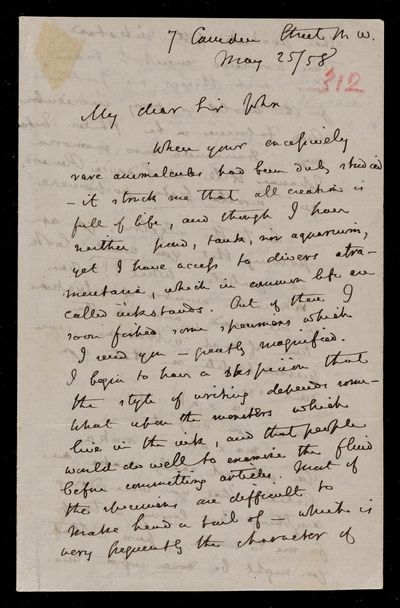 7 Camden Street N.W.
May 25/58
312
My dear Sir John
When your excessively
rare animalcules had been duly studied
– it struck me that all creation is
full of life, and though I have
neither pond, tank, nor aquarium,
yet I have access to divers atra-
mentaria, which in common life are
called inkstands. Out of these I
soon fished some specimens which
I send you – greatly magnified.
I begin to have a suspicion that
the style of writing depends some-
what upon the monsters which
live in the ink, and that people
would do well to examine the fluid
before committing articles. Most of
the specimens are difficult to
make head or tail of – which is
very frequently the character of